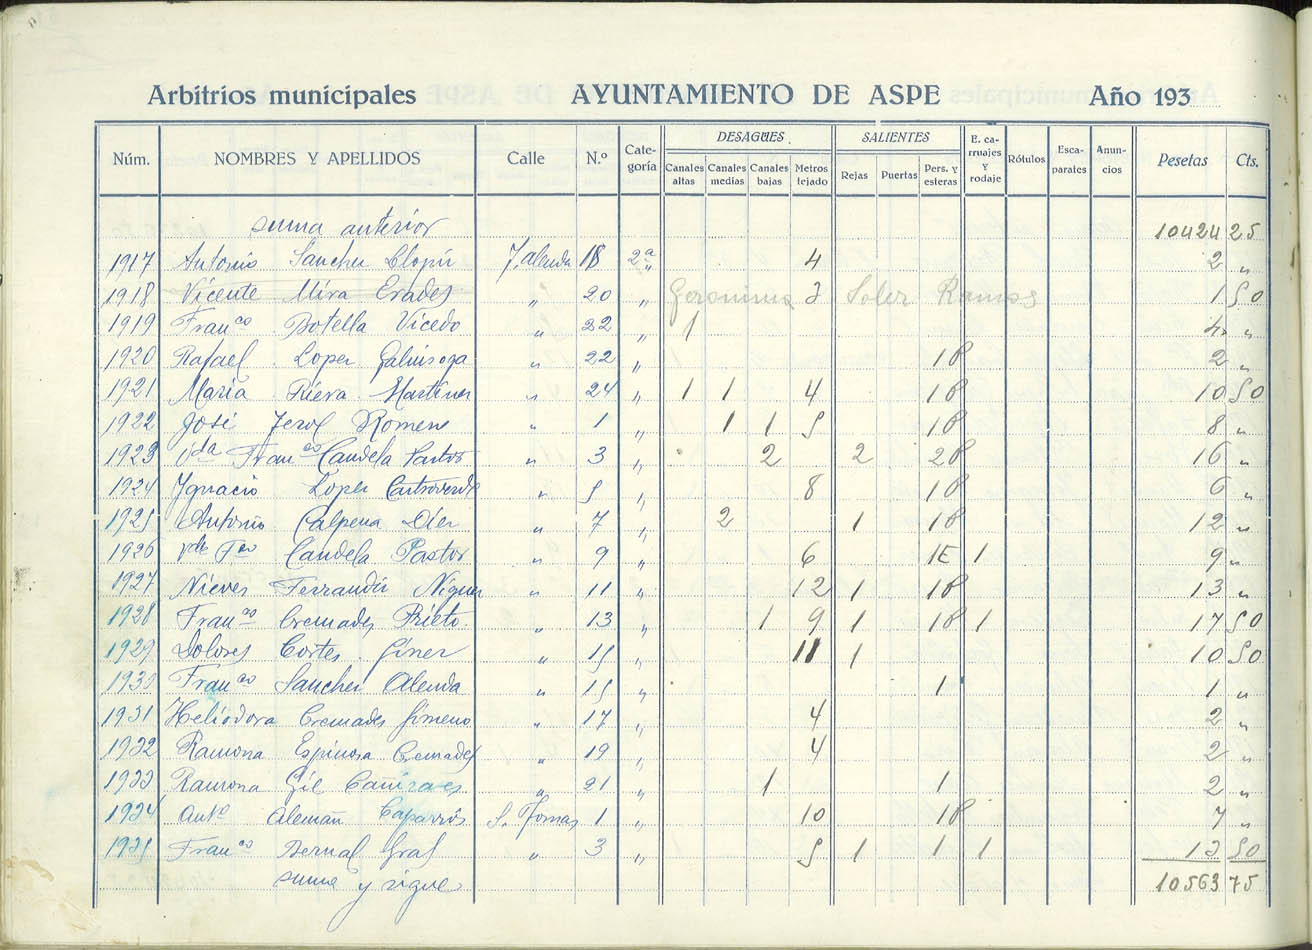 Arbitrios municipales AYUNTAMIENTO DE ASPE Año 193
Núm. NOMBRES Y APELLIDOS Calle N.º Cate-goría DESAGÜES. Canales altas Canales medias Canales bajas Metros tejado SALIENTES Rejas Puertas Pers. y esteras E. ca-rruajes Y rodaje Rótulos Esca-parates Anun-cios Pesetas Cts.
suma anterior 10424 25
1917 Antonio Sanchez Llopis J. Alenda 18 2ª 4 2 "
1918 Vicente Mira Erades " 20 " Geronima 3 Soler Ramos 1 50
1919 Franco Botella Vicedo " 22 " 1 4 "
1920 Rafael Lopez Galinsoga " 22 " 1P 2 "
1921 Maria Riera Martinez " 24 " 1 1 4 1P 10 50
1922 José Ferol Romero " 1 " 1 1 5 1P 8 "
1923 Vda Franco Candela Pastor " 3 " 2 2 2P 16 "
1924 Ygnacio Lopez Castroverde " 5 " 8 1P 6 "
1925 Antonio Calpena Diez " 7 " 2 1 1P 12 "
1926 Vda Fco Candela Pastor " 9 " 6 1E 1 9 "
1927 Nieves Ferrandiz Niguez " 11 " 12 1 1P 13 "
1928 Franco Cremades Prieto " 13 " 1 9 1 1P 1 17 50
1929 Dolores Cortes Giner " 15 " 11 1 10 50
1930 Franco Sanchez Alenda " 15 " 1 1 "
1931 Heliodora Cremades Gimeno " 17 " 4 2 "
1932 Ramona Espinosa Cremades " 19 " 4 2 "
1933 Ramona Gil Cañizares " 21 " 1 1 2 "
1934 Anto Alemañ Caparrós S. Tomas 1 " 10 1P 7 "
1935 Franco Bernal Graf " 3 " 5 1 1 1 13 50
suma y sigue 10563 75